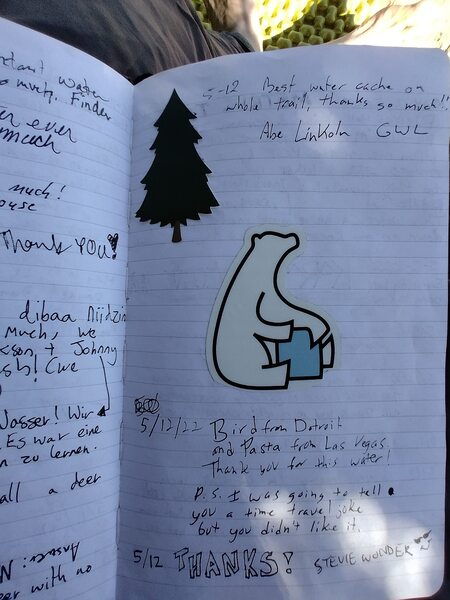 water
so much. Finder
ever
much
much!
Thank you!
dibaa
Much, we
+ Johnny
Wasser! Wir
Es war eine
zu lernen.
all a deer
Answer: N
with no
5-12 Best water cache on
whole trail, thanks so much!!
Abe Linkoln GWL
5/12/22 Bird from Detroit
and Pasta from Las Vegas.
Thank you for this water!
P.S. I was going to tell
you a time travel joke
but you didn't like it.
5/12 THANKS! STEVIE WONDER